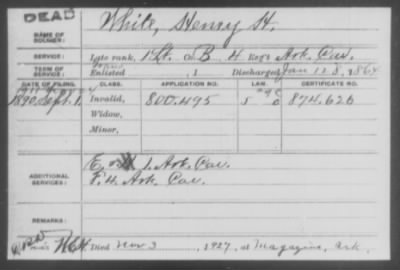 DEAD
NAME OF SOLDIER: White, Henry H.
SERVICE: Late rank, 1 Lt. Co. B, 4 Reg't Ark. Cav.
TERM OF SERVICE: Enlisted , 1 Discharged Jan 12 8, 1864
DATE OF FILING. CLASS. APPLICATION NO. LAW. CERTIFICATE NO.
1890, Sept. 1. Invalid, 800.495 874.626
Widow,
Minor,
ADDITIONAL SERVICES: E. 1. Ark. Cav.
F. 4. Ark. Cav.
REMARKS:
Died Nov 3 1927, at Magazine, Ark.